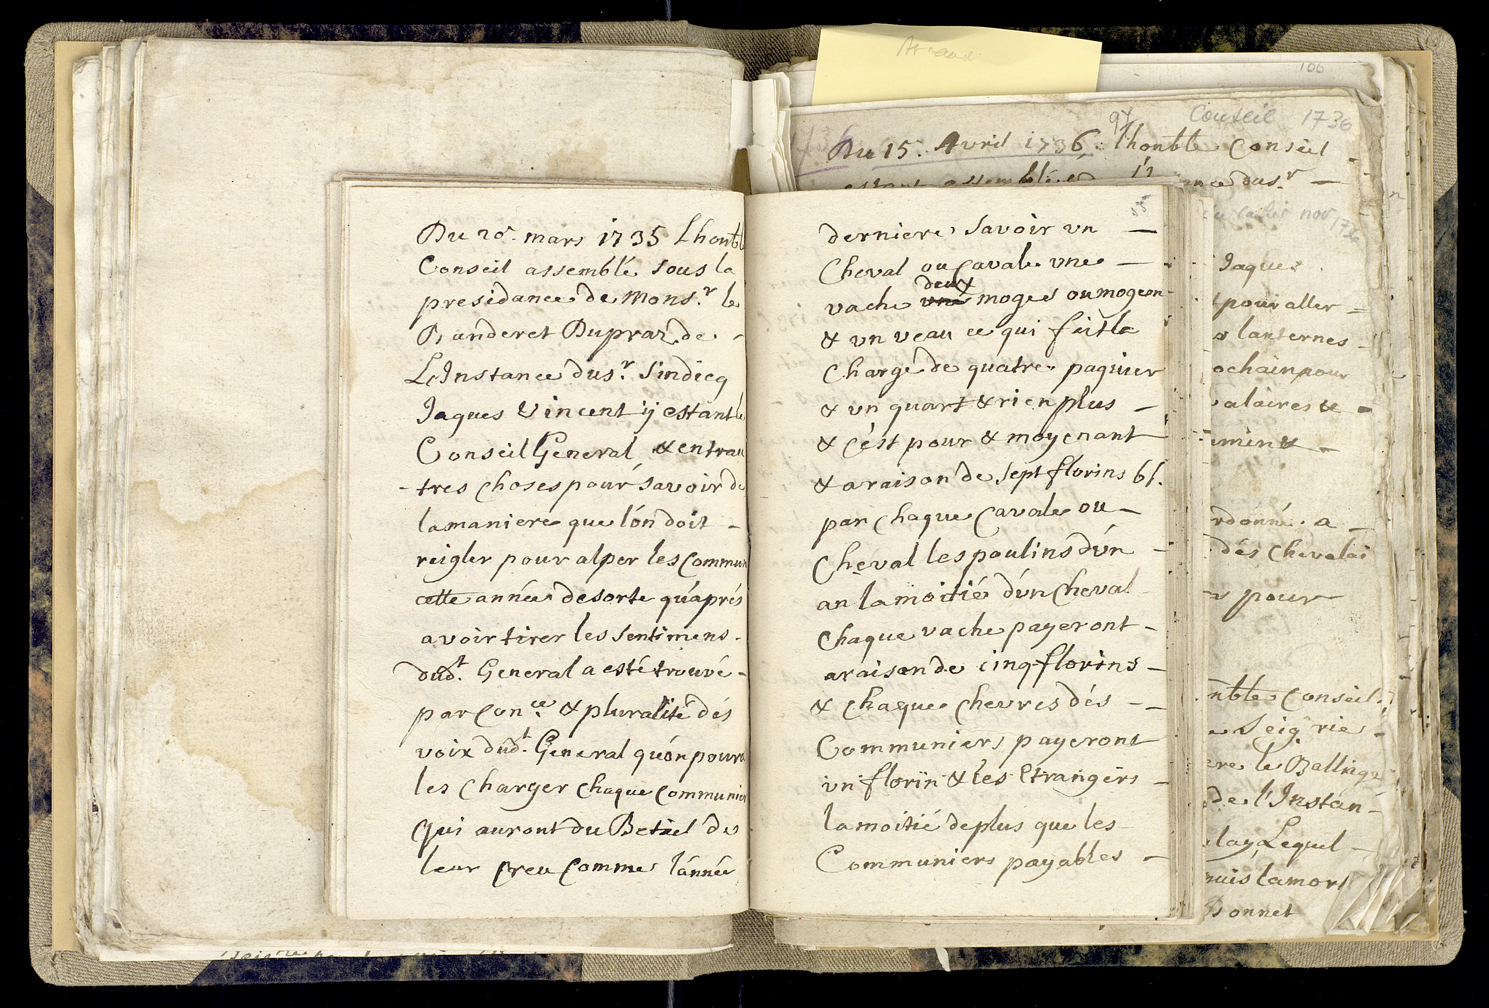 Du 20. mars 1735 Lhonble
Conseil assemblé sous la
presidance de Mons.r le
Banderet Dupraz de
L'Instance du s.r Sindicq
Jaques Vincent ÿ estant le
Conseil General & entrau
-tres choses pour savoir de
la maniere que l'ón doit -
reigler pour alper les Commun
cette année desorte qu'aprés
avoir tirer les sentimens -
dud.t General a esté trouvé -
par Con.ce & pluralité dés
voix dud.t General qu'ón pourra
les Charger chaque Communier
qui auront du Betail de
leur creu Comme l'ánnée
derniere savoir vn —
Cheval ou Cavale vne —
deux
vache vne moges ou mogeon
& vn veau ce qui fait la
Charge de quatre paquier
& vn quart & rien plus —
& c'ést pour & moyenant
& a raison de sept florins 6 s.
par Chaque Cavale ou —
Cheval les poulins d'vn —
an la moitié d'vn Cheval
Chaque vache payeront —
a raison de cinq florins —
& Chaque Chevres dés — —
Communiers payeront
vn florin & les Etrangérs —
la moitié de plus que les
Communiers payables —
106
97
Conseil 1736
Du 15. Avril 1736. lhonble Conseil
estant assemblé
du s.r —
Jaques
pour aller =
lanternes -
ochain pour
alaires &
ordonné. a —
dés Chevalai
pour
onble Conseil.
Seig.ries
le Ballinge
de l'Instan-
lay Lequel —
puis la mort
Bonnet